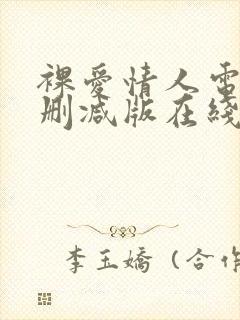 裸愛情人電
刪減版在綫
李玉嬌（合作